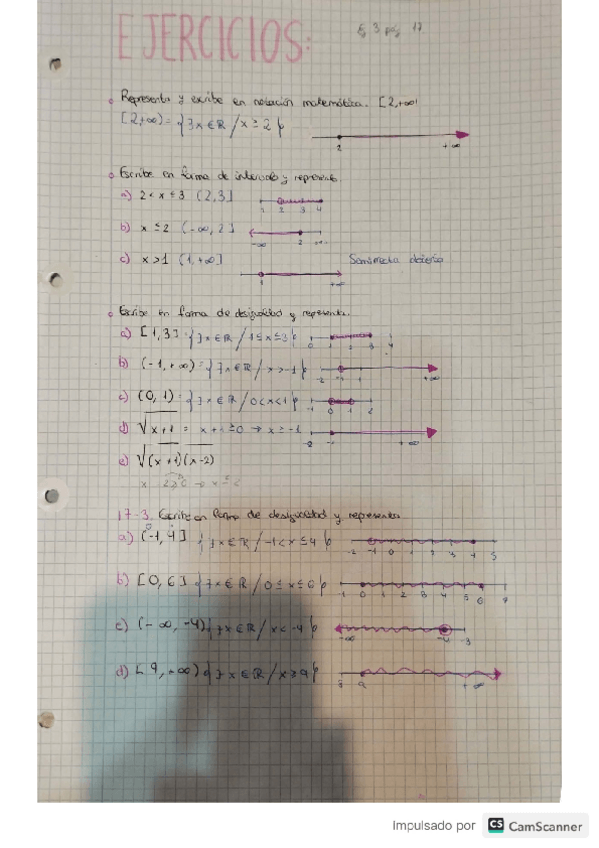 EJERCICIOS:
Ej 3 pág 17
Representa y escribe en notación matemática. [2,+∞)
[2,+∞) = {∃x∈ℝ / x ≥ 2}
2 +∞
Escribe en forma de intervalo y representa
a) 2 < x ≤ 3 (2,3]
1 2 3 4
b) x ≤ 2 (-∞, 2]
-∞ 2 +∞
c) x > 1 (1, +∞]
1 +∞
Escribe en forma de desigualdad y representa.
a) [1,3] = {∃x∈ℝ / 1 ≤ x ≤ 3}
0 1 2 3 4
b) (-1, +∞) = {∃x∈ℝ / x > -1}
-2 -1 +∞
c) (0, 1) = {∃x∈ℝ / 0<x<1}
-1 0 1 2
d) √x+1 = x+1 ≥ 0 → x ≥ -1
-2 -1 +∞
e) √(x+1)(x-2)
17-3. Escribe en forma de desigualdad y representa
a) (-1, 4] {∃x∈ℝ / -1 < x ≤ 4}
-2 -1 0 1 2 3 4 5
b) [0, 6] {∃x∈ℝ / 0 ≤ x ≤ 6}
-1 0 1 2 3 4 5 6 7
c) (-∞, -4) {∃x∈ℝ / x < -4}
-∞ -4 -3
d) [9, +∞) {∃x∈ℝ / x ≥ 9}
8 9 +∞
Impulsado por CS CamScanner